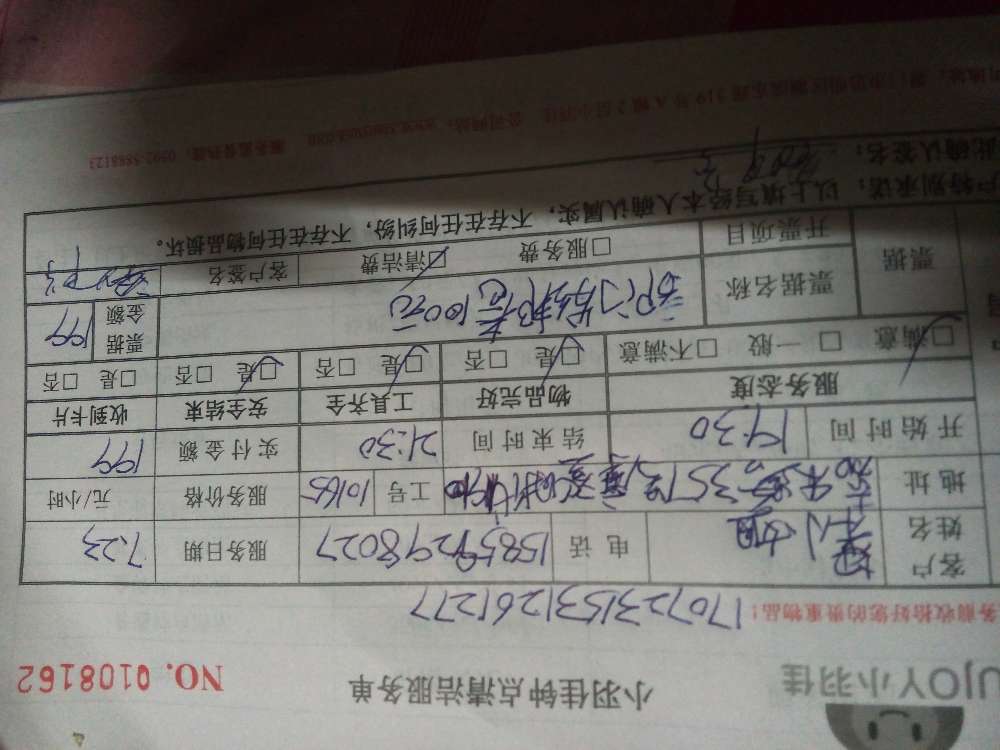 UJOY小羽佳 小羽佳钟点清洁服务单 NO. 0108162
务前收拾好您的贵重物品： 1707231531261277
客户姓名 小姐 电话 15859298027 服务日期 7.23
地址 工号 10165 服务价格 元/小时
开始时间 19:30 结束时间 21:30 实付金额 199
服务态度 物品完好 工具齐全 安全结束 收到卡片
□满意 □一般 □不满意 □是 □否 □是 □否 □是 □否 □是 □否
票据 票据名称 100元 票据金额 199
开票项目 □服务费 □清洁费 客户签名
户特别承诺：以上填写经本人确认属实，不存在任何纠纷，不存在任何物品损坏。
此确认签名：
219号A幢2层小羽佳 公司网站：www.xmyujia.com 服务监督热线：0592-5888123